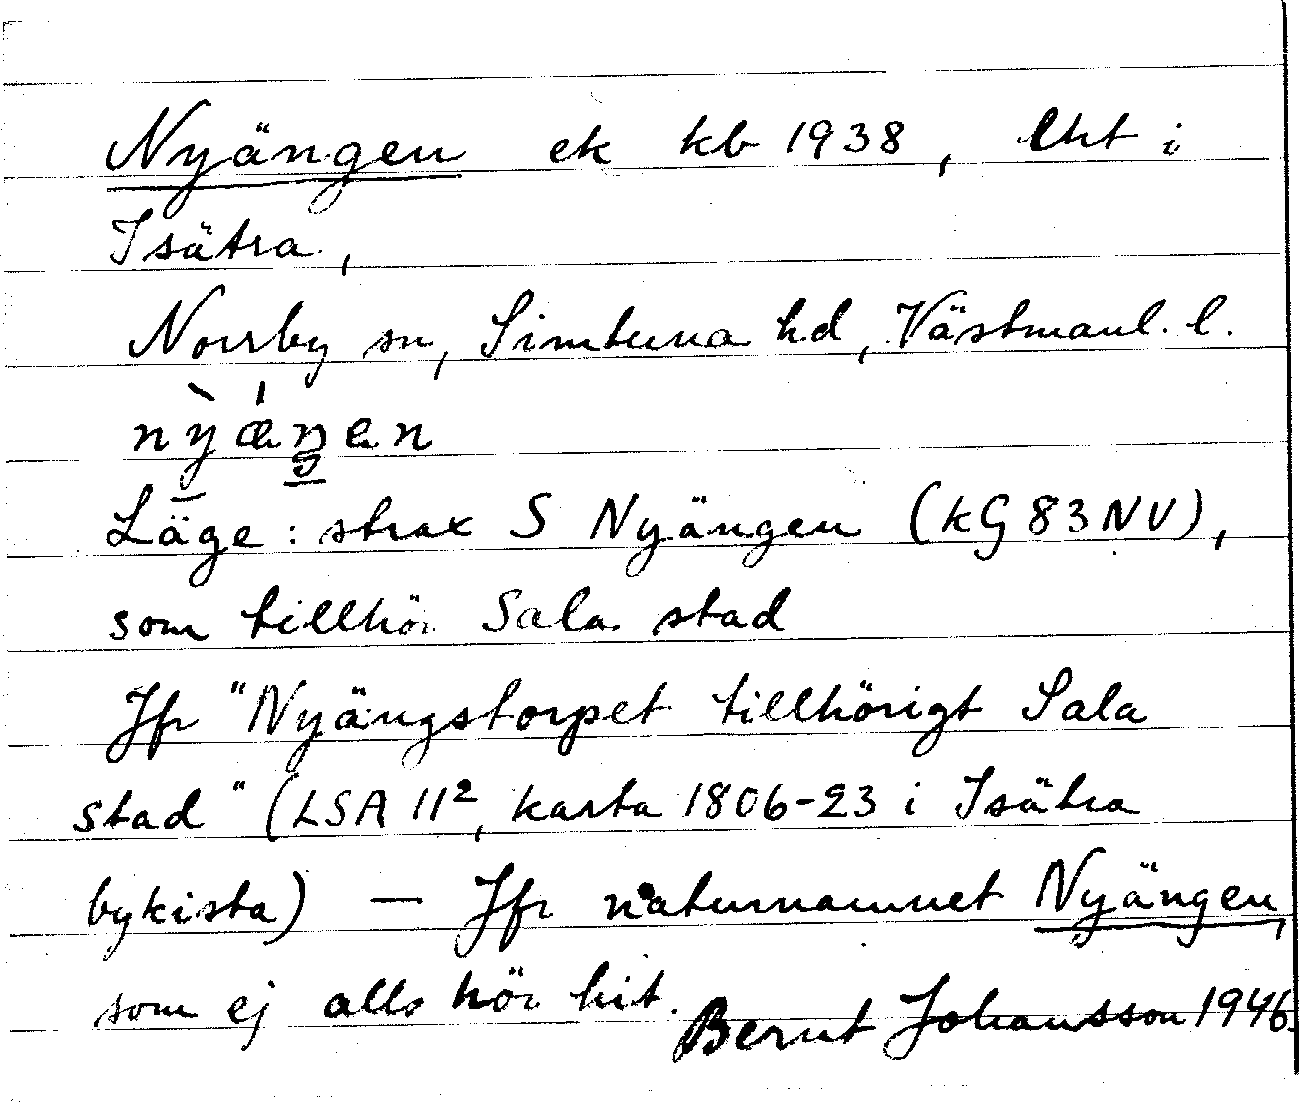 Nyängen ek kb 1938, lht i
Isätra,
Norrby sn, Simtuna hd, Västmanl. l.
nỳǽŋen
Läge: strax S Nyängen (kG 83 NV),
som tillhör Sala stad
Jfr "Nyängstorpet tillhörigt Sala
stad" (LSA 11², karta 1806-23 i Isätra
bykista) — Jfr naturnamnet Nyängen,
som ej alls hör hit.
Bernt Johansson 1946